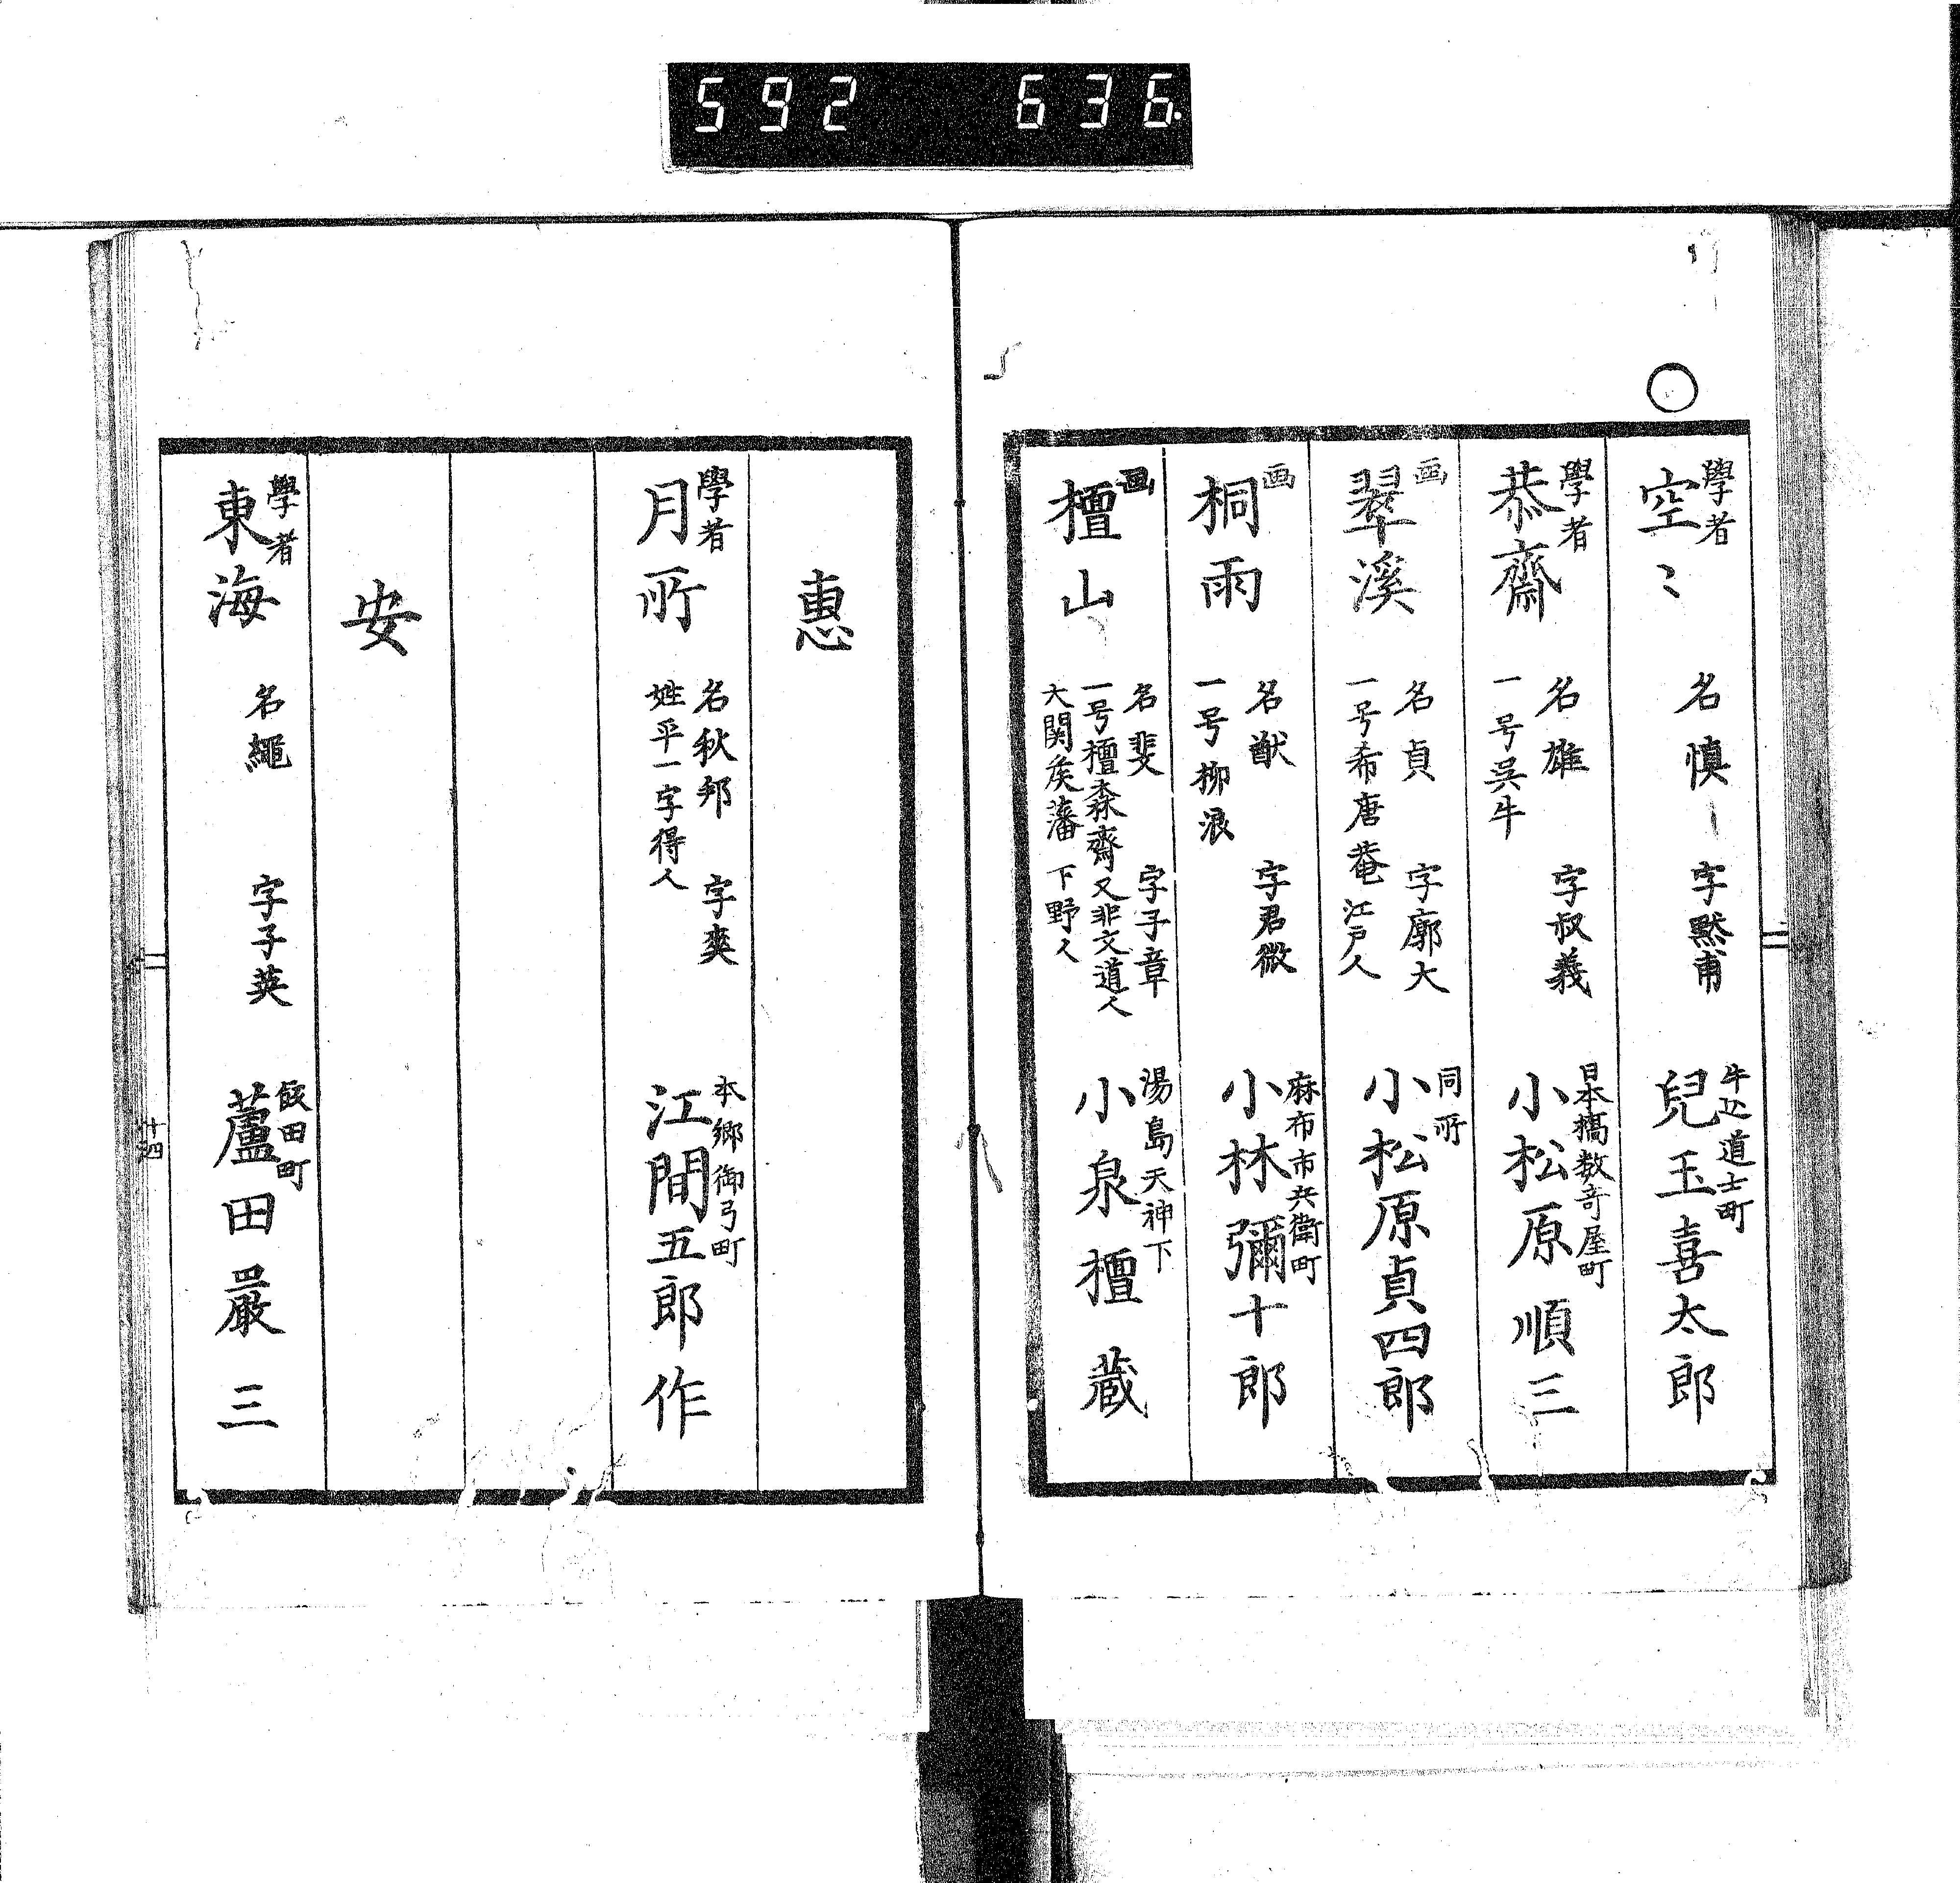 592 636.
學者
空〻
名慎
字黙甫
牛込道士町
兒玉喜太郎
學者
恭齋
名雄
字叔義
一号呉牛
日本橋数奇屋町
小松原順三
画
翠溪
名貞
字廓大
一号希唐菴 江戸人
同所
小松原貞四郎
画
桐雨
名猷
字君微
一号柳浪
麻布市兵衛町
小林彌十郎
画
檀山
名斐
字子章
一号檀森齋又非文道人
大関矦藩 下野人
湯島天神下
小泉檀蔵
惠
學者
月所
名秋邦
字爽
姓平一字得人
本郷御弓町
江間五郎作
安
學者
東海
名繩
字子英
飯田町
蘆田巖三
十四